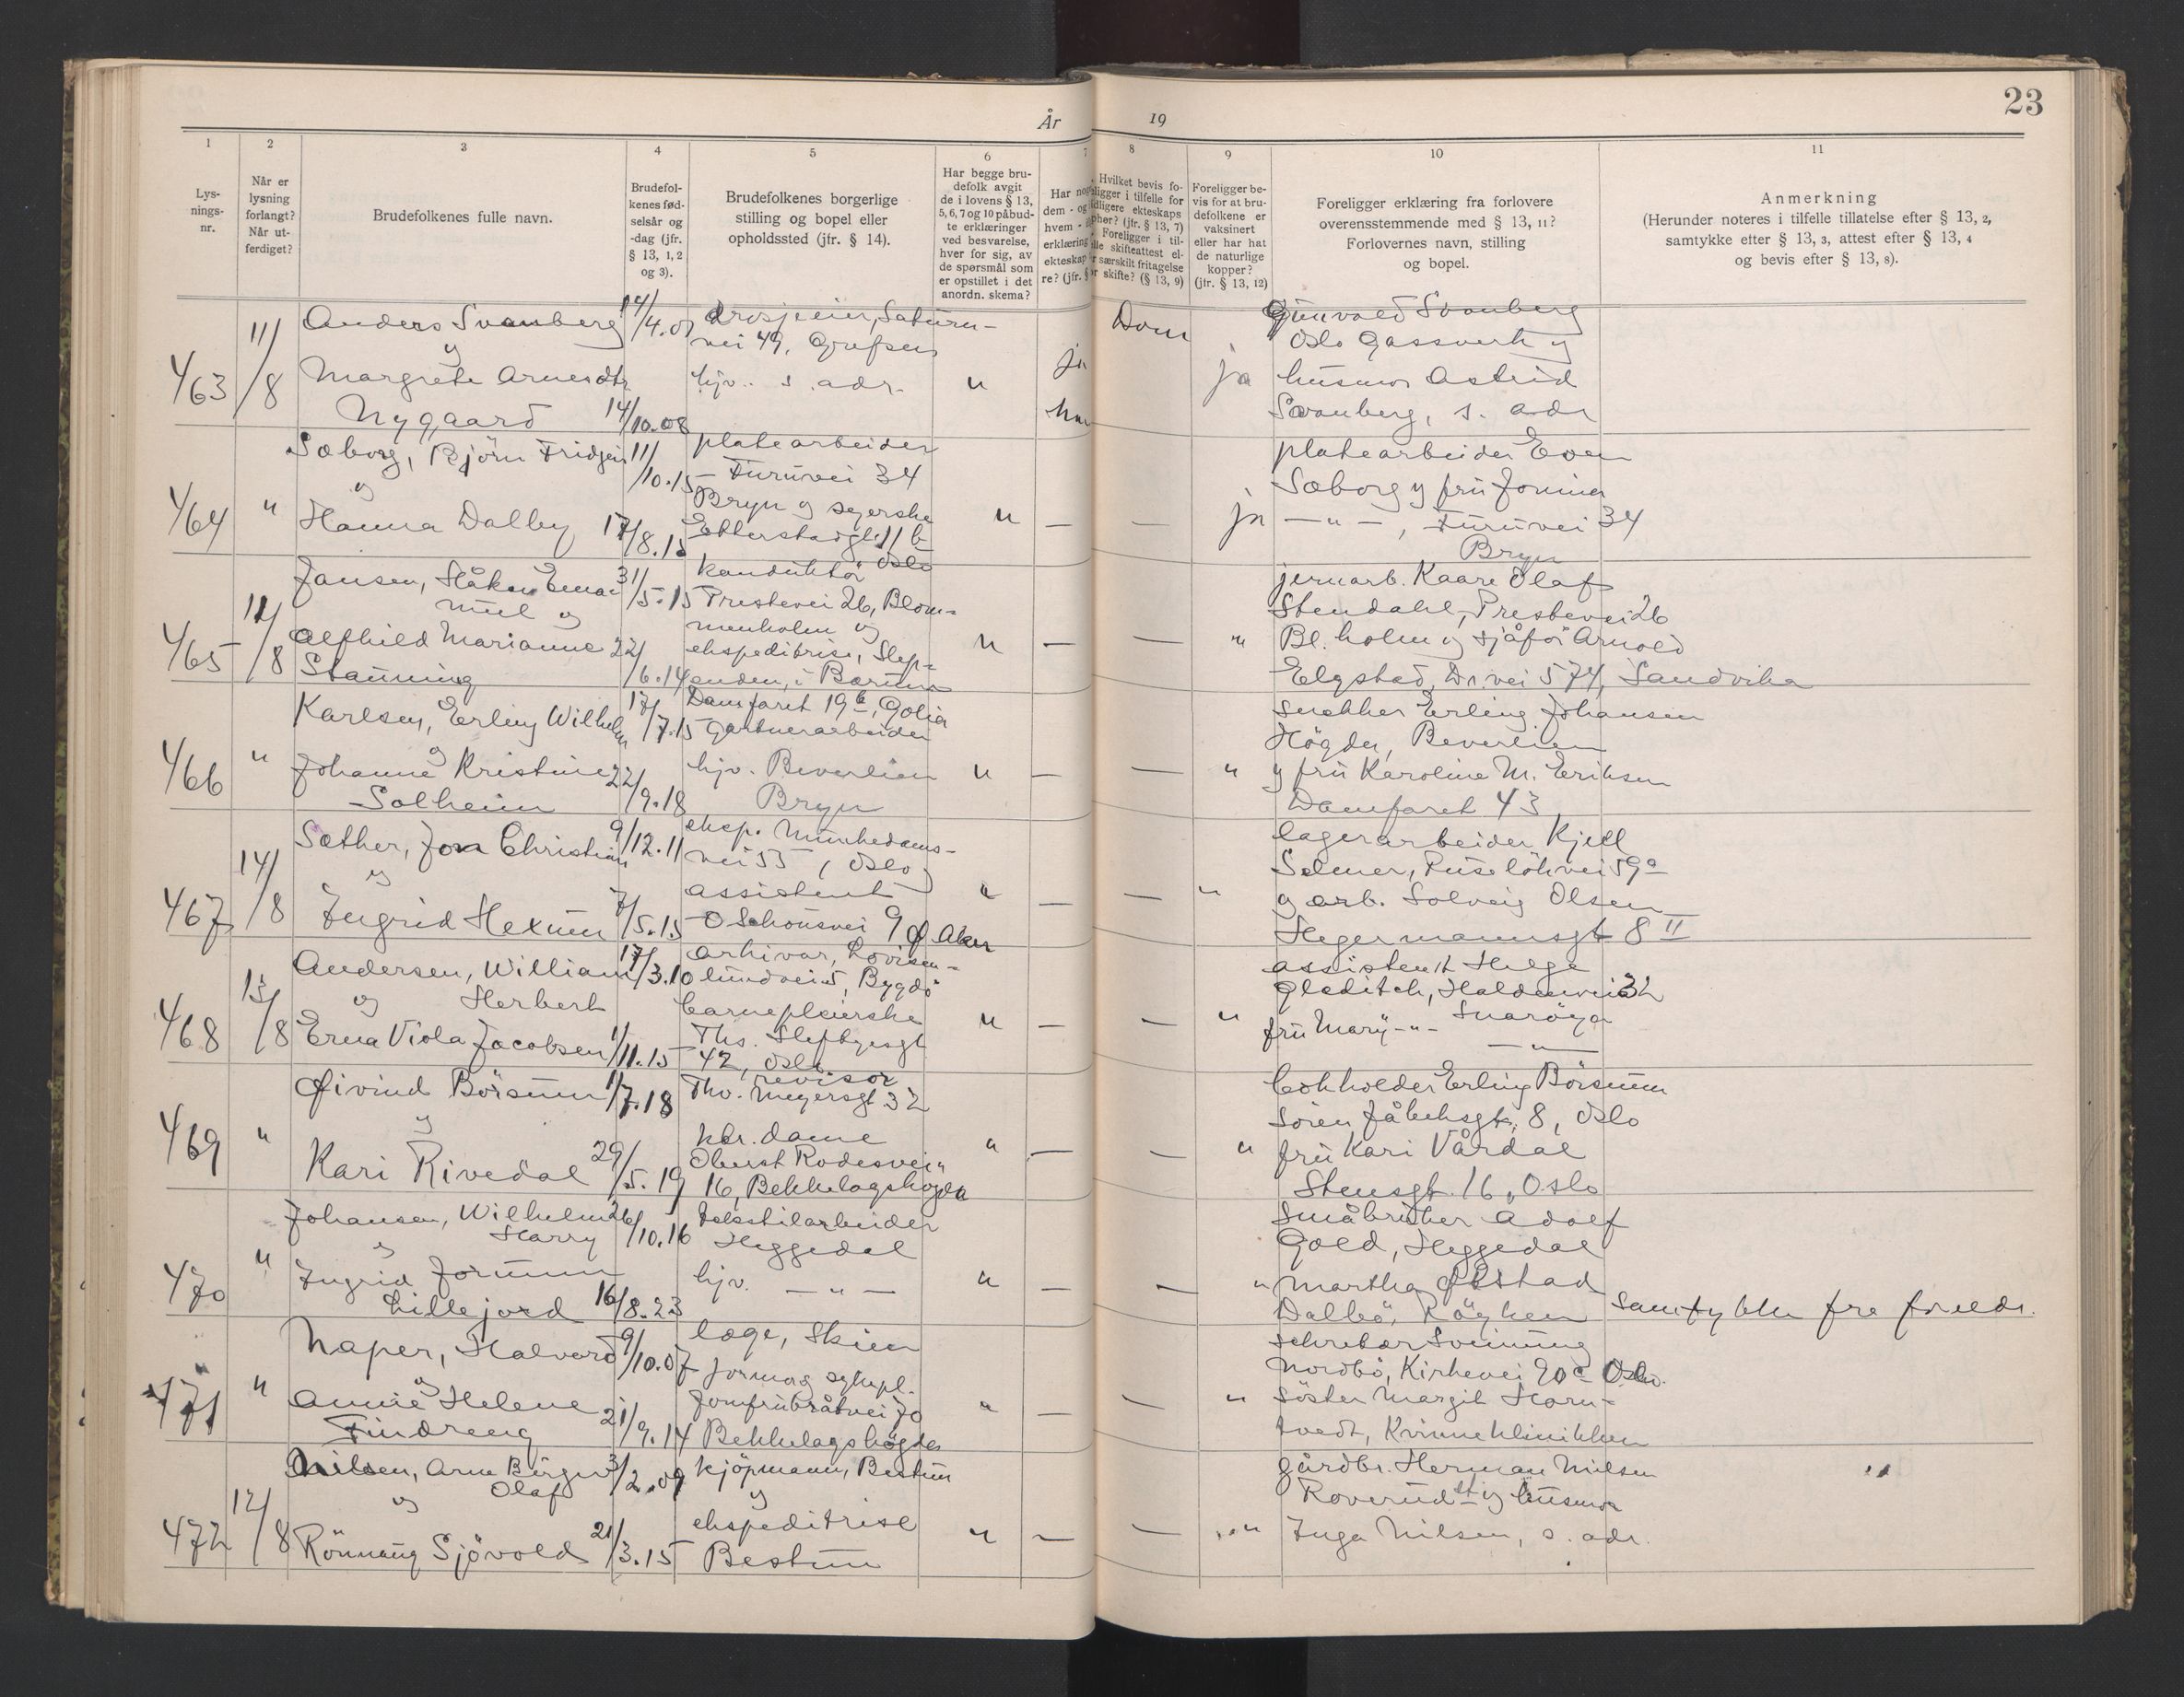 År 19
23
1
Lys-
nings-
nr.
2
Når er
lysning
forlangt?
Når ut-
ferdiget?
3
Brudefolkenes fulle navn.
4
Brudefol-
kenes fød-
selsår og
-dag (jfr.
§ 13, 1, 2
og 3).
5
Brudefolkenes borgerlige
stilling og bopel eller
opholdssted (jfr. § 14).
6
Har begge bru-
defolk avgit
de i lovens § 13,
5, 6, 7 og 10 påbud-
te erklæringer
ved besvarelse,
hver for sig, av
de spørsmål som
er opstillet i det
anordn. skema?
7
Har
dem - og
hvem -
erklæring
ekteskap
re? (jfr. §
8
Hvilket bevis fo-
religger i tilfelle for
tidligere ekteskaps
ophør? (jfr. § 13, 7)
Foreligger i til-
felle skifteattest el-
ler særskilt fritagelse
for skifte? (§ 13, 9)
9
Foreligger be-
vis for at bru-
defolkene er
vaksinert
eller har hat
de naturlige
kopper?
(jfr. § 13, 12)
10
Foreligger erklæring fra forlovere
overensstemmende med § 13, 11?
Forlovernes navn, stilling
og bopel.
11
Anmerkning
(Herunder noteres i tilfelle tillatelse efter § 13, 2,
samtykke efter § 13, 3, attest efter § 13, 4
og bevis efter § 13, 8).
463
11/8
Anders Svanberg
og
Margrete Arnesdtr
Nygaard
14/4.07
14/10.08
drosjeeier, Saturn-
vei 49, Grefsen
hjv. s. adr.
"
ja
Dom
ja
Gunvald Svanberg
Oslo Gassverk og
husmor Astrid
Svanberg, s. adr
464
"
Sæborg, Bjørn Fridtjen
og
Hanna Dalby
11/10.15
17/8.15
platearbeider
Furuvei 34
Bryn og syerske
Etterstadgt. 11 b
Oslo
"
—
—
ja
platearbeider Even
Sæborg og fru Jonina
— " —, Furuvei 34
Bryn
465
12/8
Jansen, Håkon Ema-
nuel og
Alfhild Marianne
Stauning
31/5.15
22/6.14
konduktør
Prestevei 26, Blom-
menholm og
ekspeditrise, Slep-
enden, i Bærum
"
—
—
"
jernarb. Kaare Olaf
Stendahl, Prestevei 26
Bl.holm og sjåfør Arnold
Elgstad, Dr.vei 574, Sandvika
466
"
Karlsen, Erling Wilhelm
og
Johanne Kristine
Solheim
17/7.15
22/9.18
Damfaret 19 b, Golia
Gartnerarbeider
hjv. Beverlien
Bryn
"
—
—
"
snekker Erling Johansen
Högda, Beverlien
og fru Karoline M. Eriksen
Damfaret 43
467
14/8
Sæther, Jon Christian
og
Ingrid Hexum
9/12.11
7/5.15
eksp. Munkedams-
vei 55, Oslo
assistent
O Schousvei 9 Ø Aker
"
—
—
"
lagerarbeider Kjell
Selmer, 59a
og arb. Solveig Olsen
Hegermannsgt 8 II
468
13/8
Andersen, William
og Herbert
Erna Viola Jacobsen
17/3.10
1/11.15
arkivar, Lovisen-
lundvei 5, Bygdö
barnepleierske
Ths. Heftyesgt
42, Oslo
"
—
—
"
assistent Helge
Gleditch, Haldenvei 32
Snaröya
fru Mary - " -
— " —
469
"
Øivind Börsum
og
Kari Rivedal
1/7.18
29/5.19
revisor
Thv. Meyersgt 32
ktr. dame
Oberst Rodesvei
16, Bekkelagshögda
"
—
—
"
bokholder Erling Börsum
Sören Jåbeksgt. 8, Oslo
fru Kari Vårdal
Stensgt. 16, Oslo
470
"
Johansen, Wilhelm
Harry
og
Ingrid Jorunn
Lillejord
26/10.16
16/8.23
tekstilarbeider
Heggedal
hjv. — " —
"
—
—
"
småbruker Adolf
Gold, Heggedal
Martha Ølstad
Dalbö, Röyken
Samtykke fra foreldr.
471
"
Naper, Halvard
og
Annie Helene
Findreng
9/10.07
21/9.14
læge, Skien
sykepl.
Jomfrubråtvei 70
Bekkelagshögda
"
—
—
"
sekretær Svinning
Nordbö, Kirkevei 90 c Oslo.
söster Margit Horn-
tvedt, Kvinneklinikken
472
12/8
Nilsen, Arne Börger
Olaf
og
Rönnaug Sjövold
3/2.09
21/3.15
kjöpmann, Bestum
og
ekspeditrise
Bestum
"
—
—
"
gårdbr. Herman Nilsen
Roverud st og husmor
Inga Nilsen, s. adr.